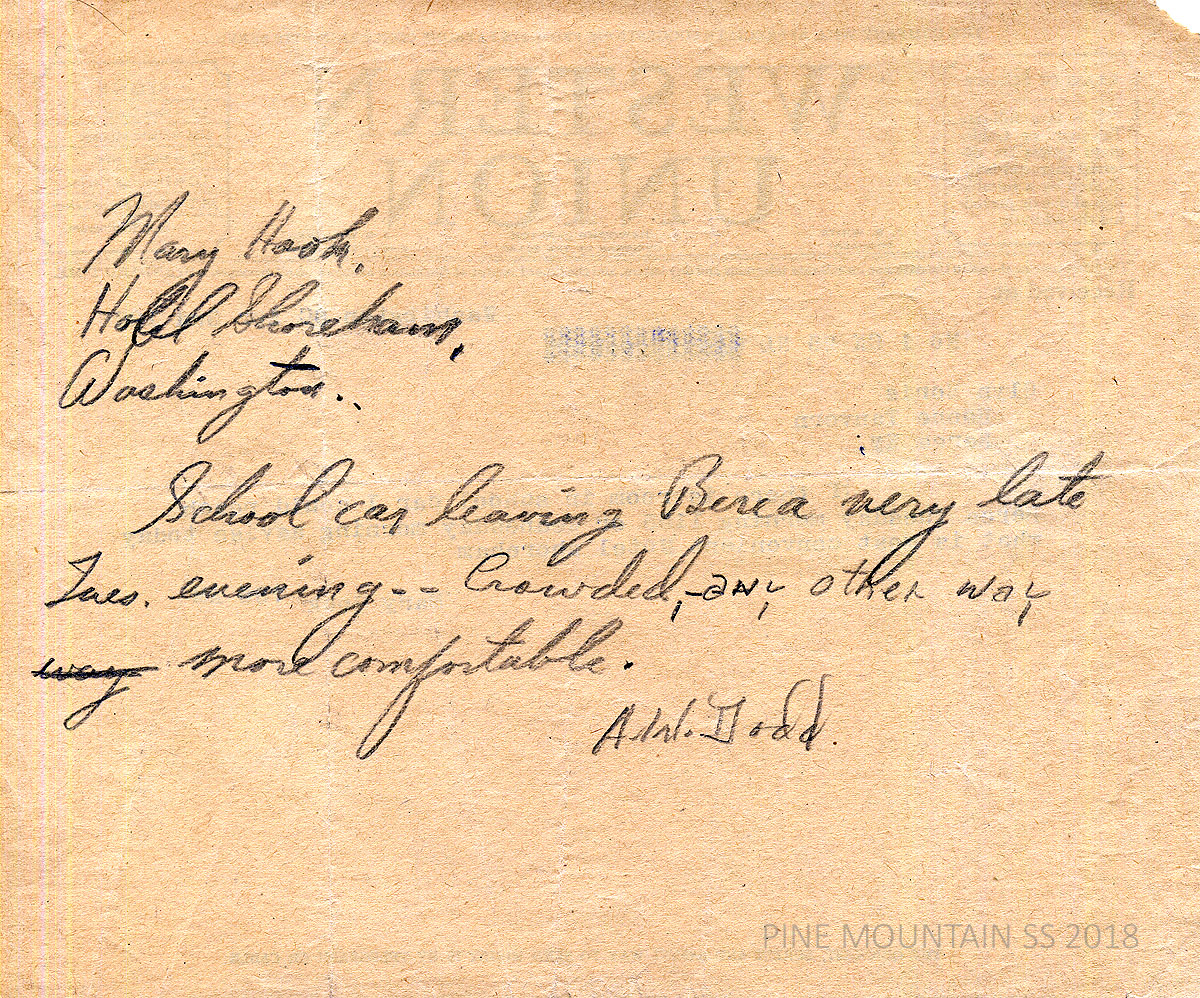 WESTERN
UNION
Mary Hook,
Hotel Shoreham,
Washington..
School car leaving Berea very late
Tues. evening -- Crowded, - any other way
way more comfortable.
A.W. Dodd.
PINE MOUNTAIN SS 2018